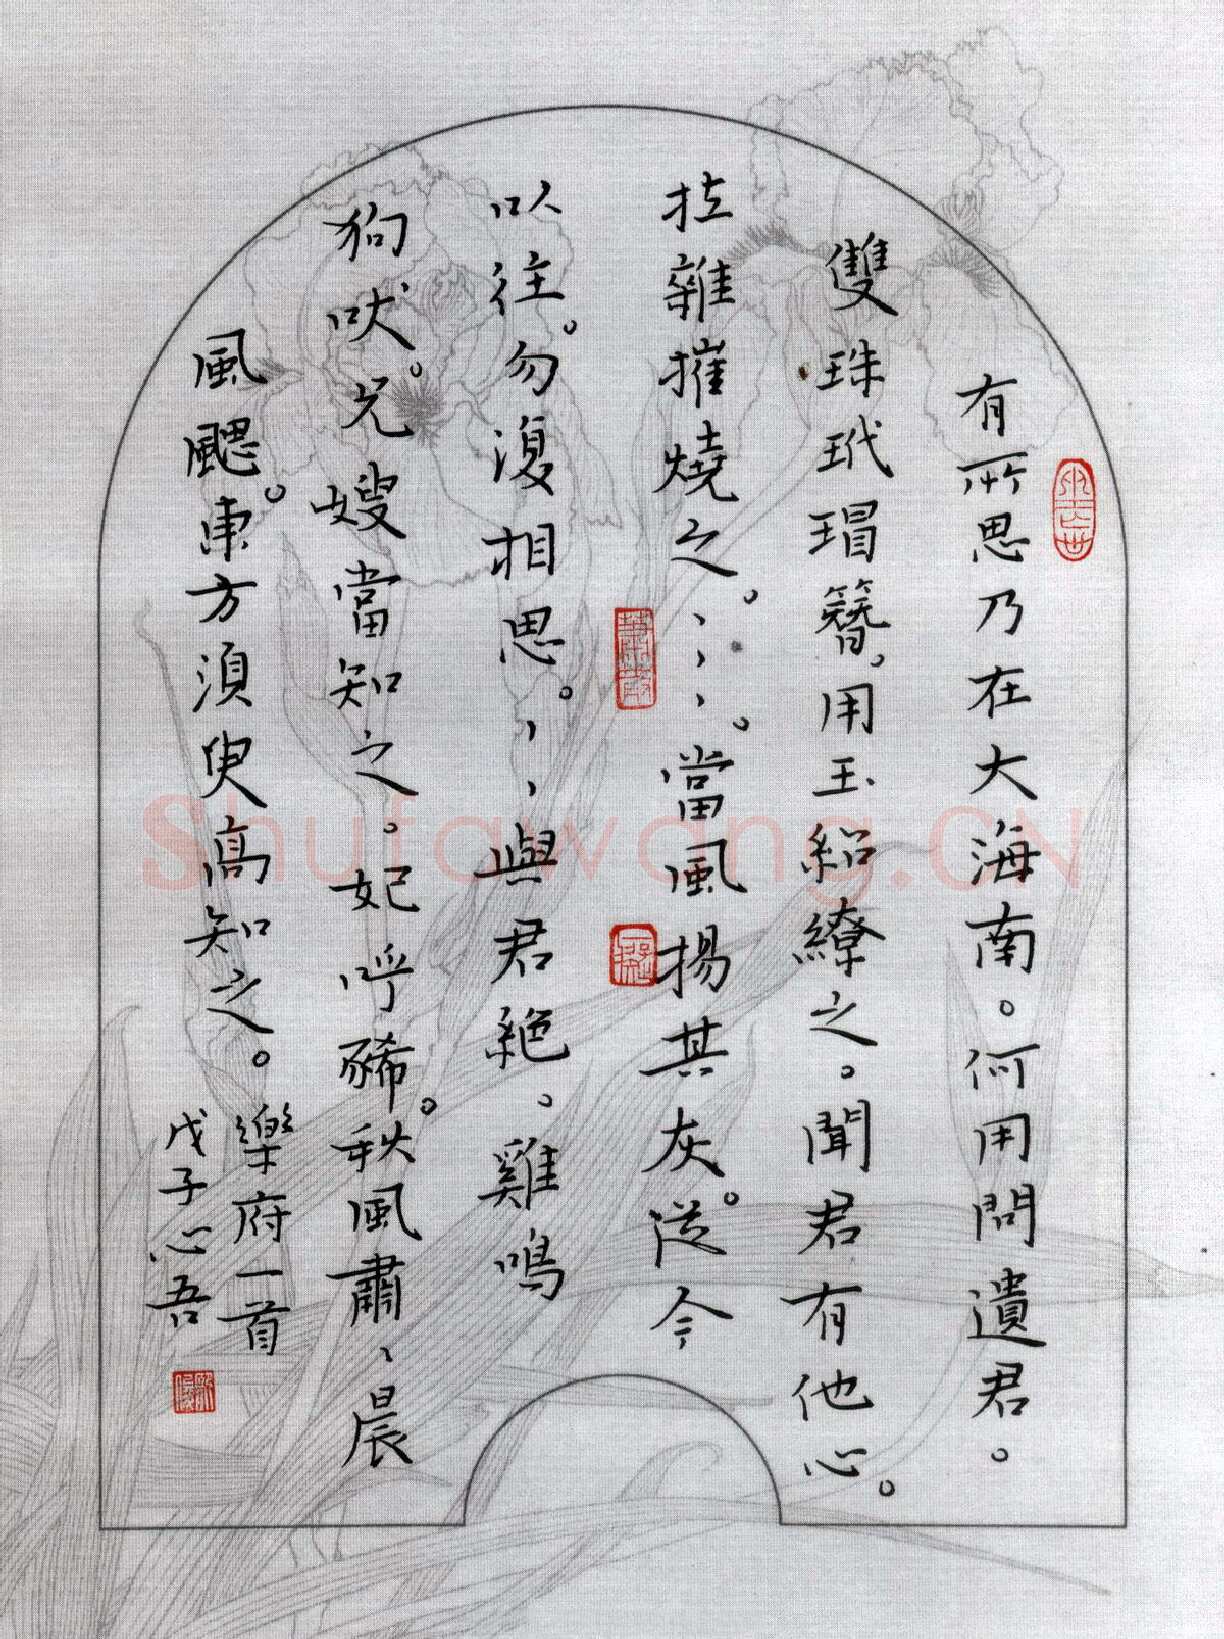 有所思乃在大海南。何用問遺君。
雙珠玳瑁簪。用玉紹繚之。聞君有他心。
拉雜摧燒之。、、、。當風揚其灰。從今
以往。勿復相思。、、與君絕。雞鳴
狗吠。兄嫂當知之。妃呼豨。秋風肅、晨
風颸。東方須臾高知之。
樂府一首
戊子心吾
Shufawang.CN